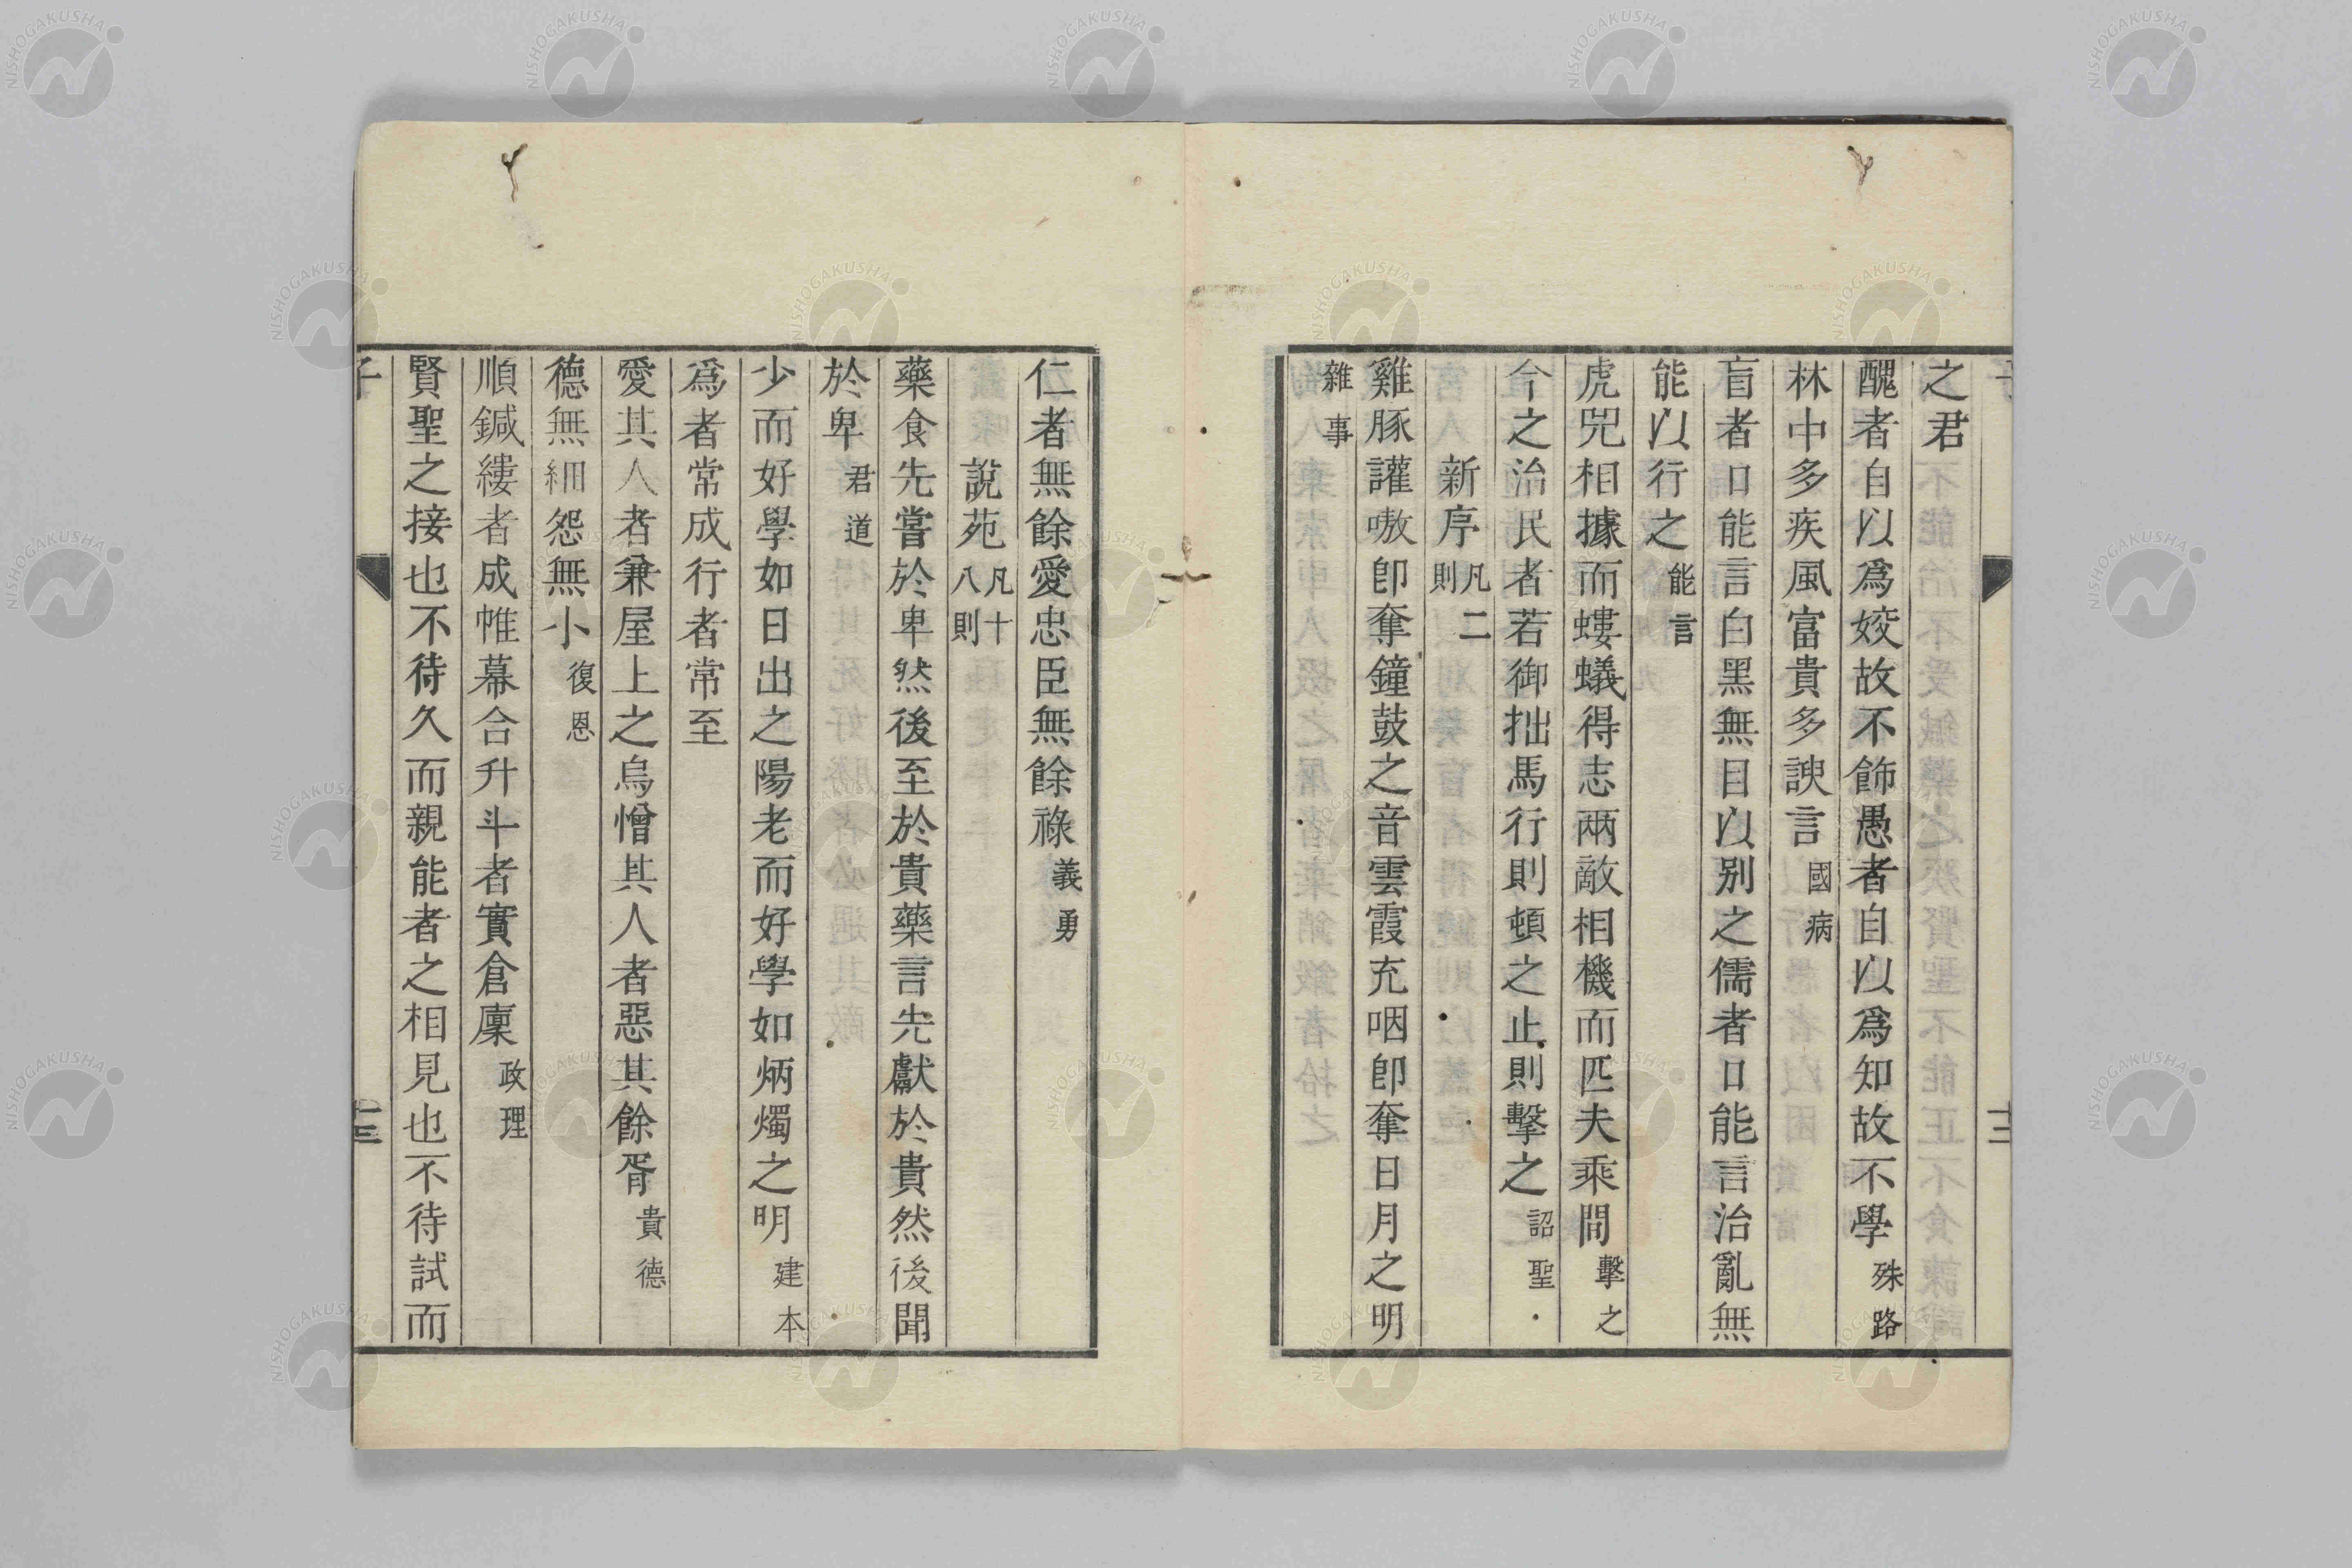 之君
醜者自以爲姣故不飾愚者自以爲知故不學殊路
林中多疾風富貴多諛言國病
盲者口能言白黑無目以别之儒者口能言治亂無
能以行之能言
虎兕相據而螻蟻得志兩敵相機而匹夫乘間擊之
今之治民者若御拙馬行則頓之止則擊之詔聖
新序凡二則
雞豚讙嗷卽奪鐘鼓之音雲霞充咽卽奪日月之明
雜事
仁者無餘愛忠臣無餘祿義勇
說苑凡十八則
藥食先嘗於卑然後至於貴藥言先獻於貴然後聞
於卑君道
少而好學如日出之陽老而好學如炳燭之明建本
爲者常成行者常至
愛其人者兼屋上之烏憎其人者惡其餘胥貴德
德無細怨無小復恩
順鍼縷者成帷幕合升斗者實倉廩政理
賢聖之接也不待久而親能者之相見也不待試而
NISHOGAKUSHA